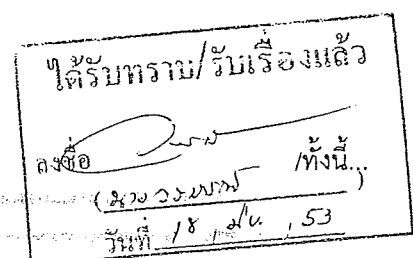 ได้รับทราบ/รับเรื่องแล้ว
ลงชื่อ
/ทั้งนี้...
(นาง )
วันที่ 18 มิย. 53